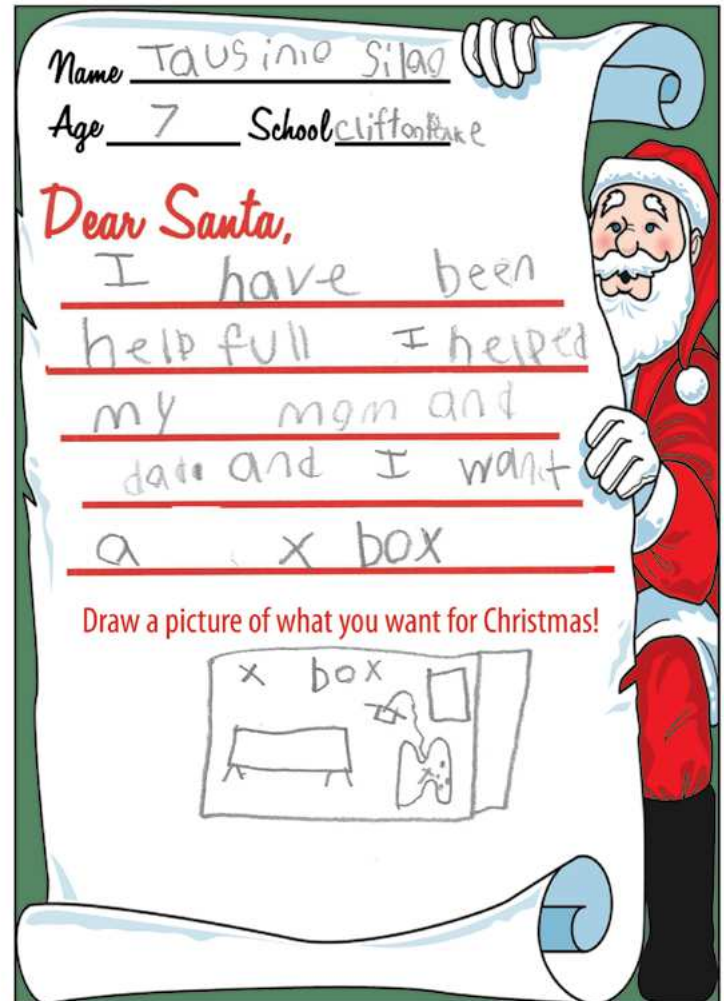 Name Tausinio Silao
Age 7 School Clifton
Dear Santa,
I have been
help full I helped
my mom and
and I want
a x box
Draw a picture of what you want for Christmas!
x box